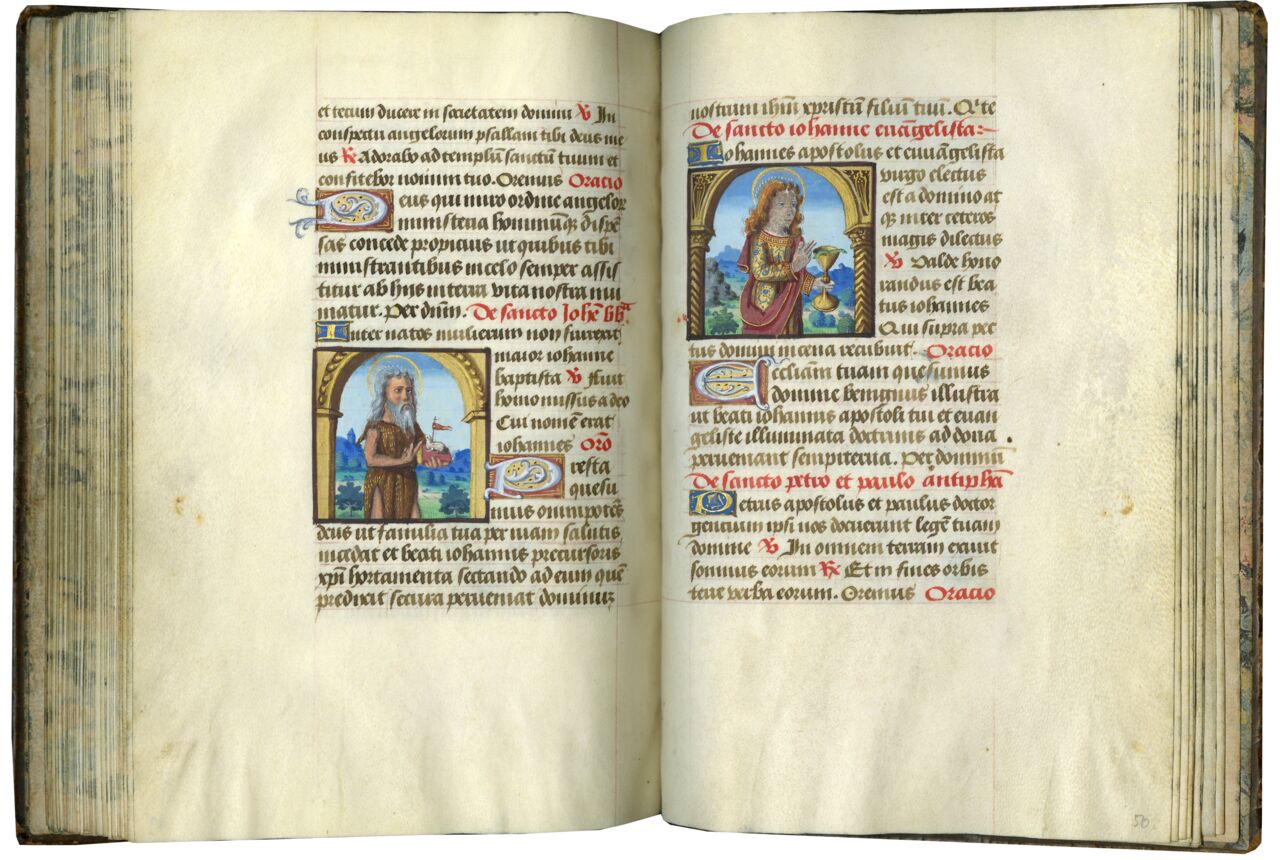 et tecum ducere in societatem domini ℣ In
conspectu angelorum psallam tibi deus me
us ℟ Adorabo ad templũ sanctũ tuum et
confitebor nomini tuo. Oremus Oracio
Deus qui miro ordine angelor
ministeria hominũq; dispẽ
sas concede propicius ut quibus tibi
ministrantibus in celo semper assis
titur ab hiis in terra vita nostra mu
niatur. Per dñm. De sancto Johẽ bb̃a
Inter natos mulierum non surrexit
maior iohanne
baptista ℣ Fuit
homo missus a deo
Cui nomẽ erat
iohannes Orõ
Presta
quesu
mus omnipotẽs
deus ut familia tua per viam salutis
incedat et beati iohannis precursoris
xpĩ hortamenta sectando ad eum quẽ
predixit secura perveniat dominuz
nostrum ihũ xpristũ filiũ tuũ. Q̃ te
De sancto iohanne euãgelista
Iohannes apostolus et euuãgelista
virgo electus
est a domino at
q; inter ceteros
magis dilectus
℣ Valde hono
randus est bea
tus iohannes
Qui supra pec
tus domini in cena recubuit. Oracio
Eccliam tuam quesumus
domine benignus illustra
ut beati iohannis apostoli tui et euan
geliste illuminata doctrinis ad dona
perveniant sempiterna. Per dominũ
De sancto petro et paulo antiphã
Petrus apostolus et paulus doctor
gentium ipsi nos docuerunt legẽ tuam
domine ℣ In omnem terram exiuit
sonnus eorum ℟ Et in fines orbis
terre verba eorum. Oremus Oracio
50